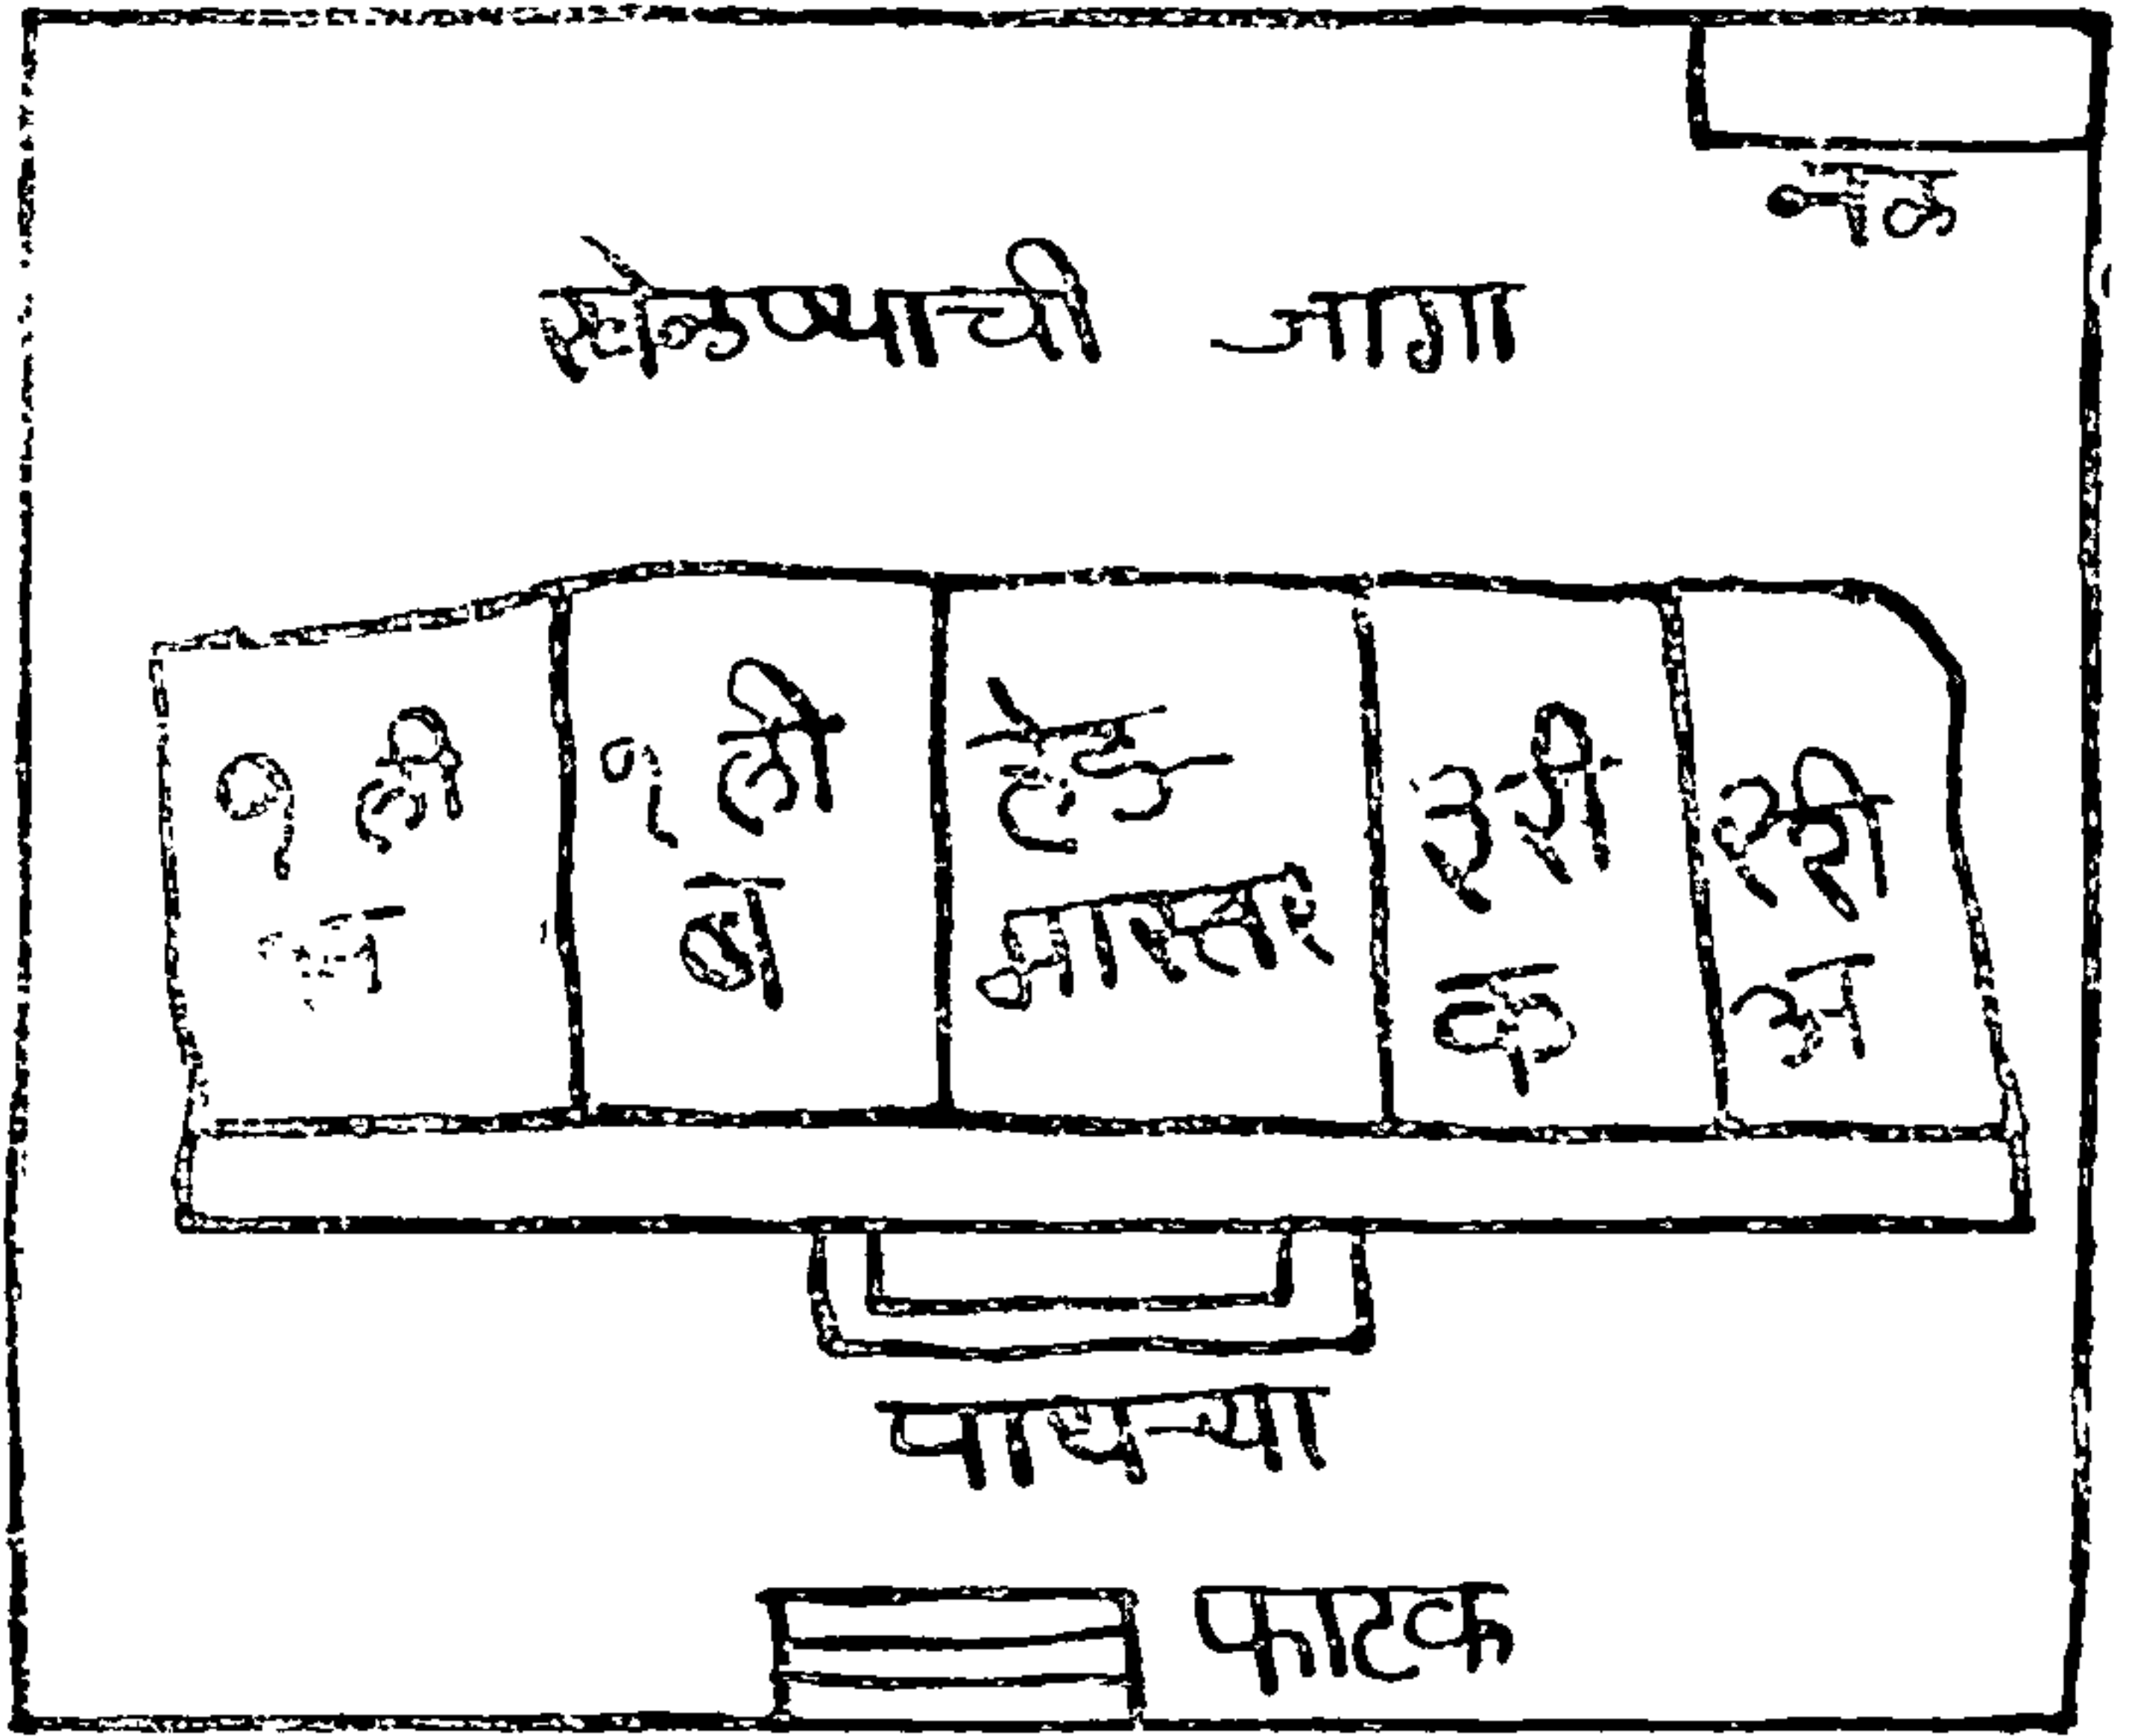 नळ
खेळण्याची जागा
१ ली
१ ली
ब
हेड
मास्तर
३री
क
२री
अ
पायऱ्या
फाटक